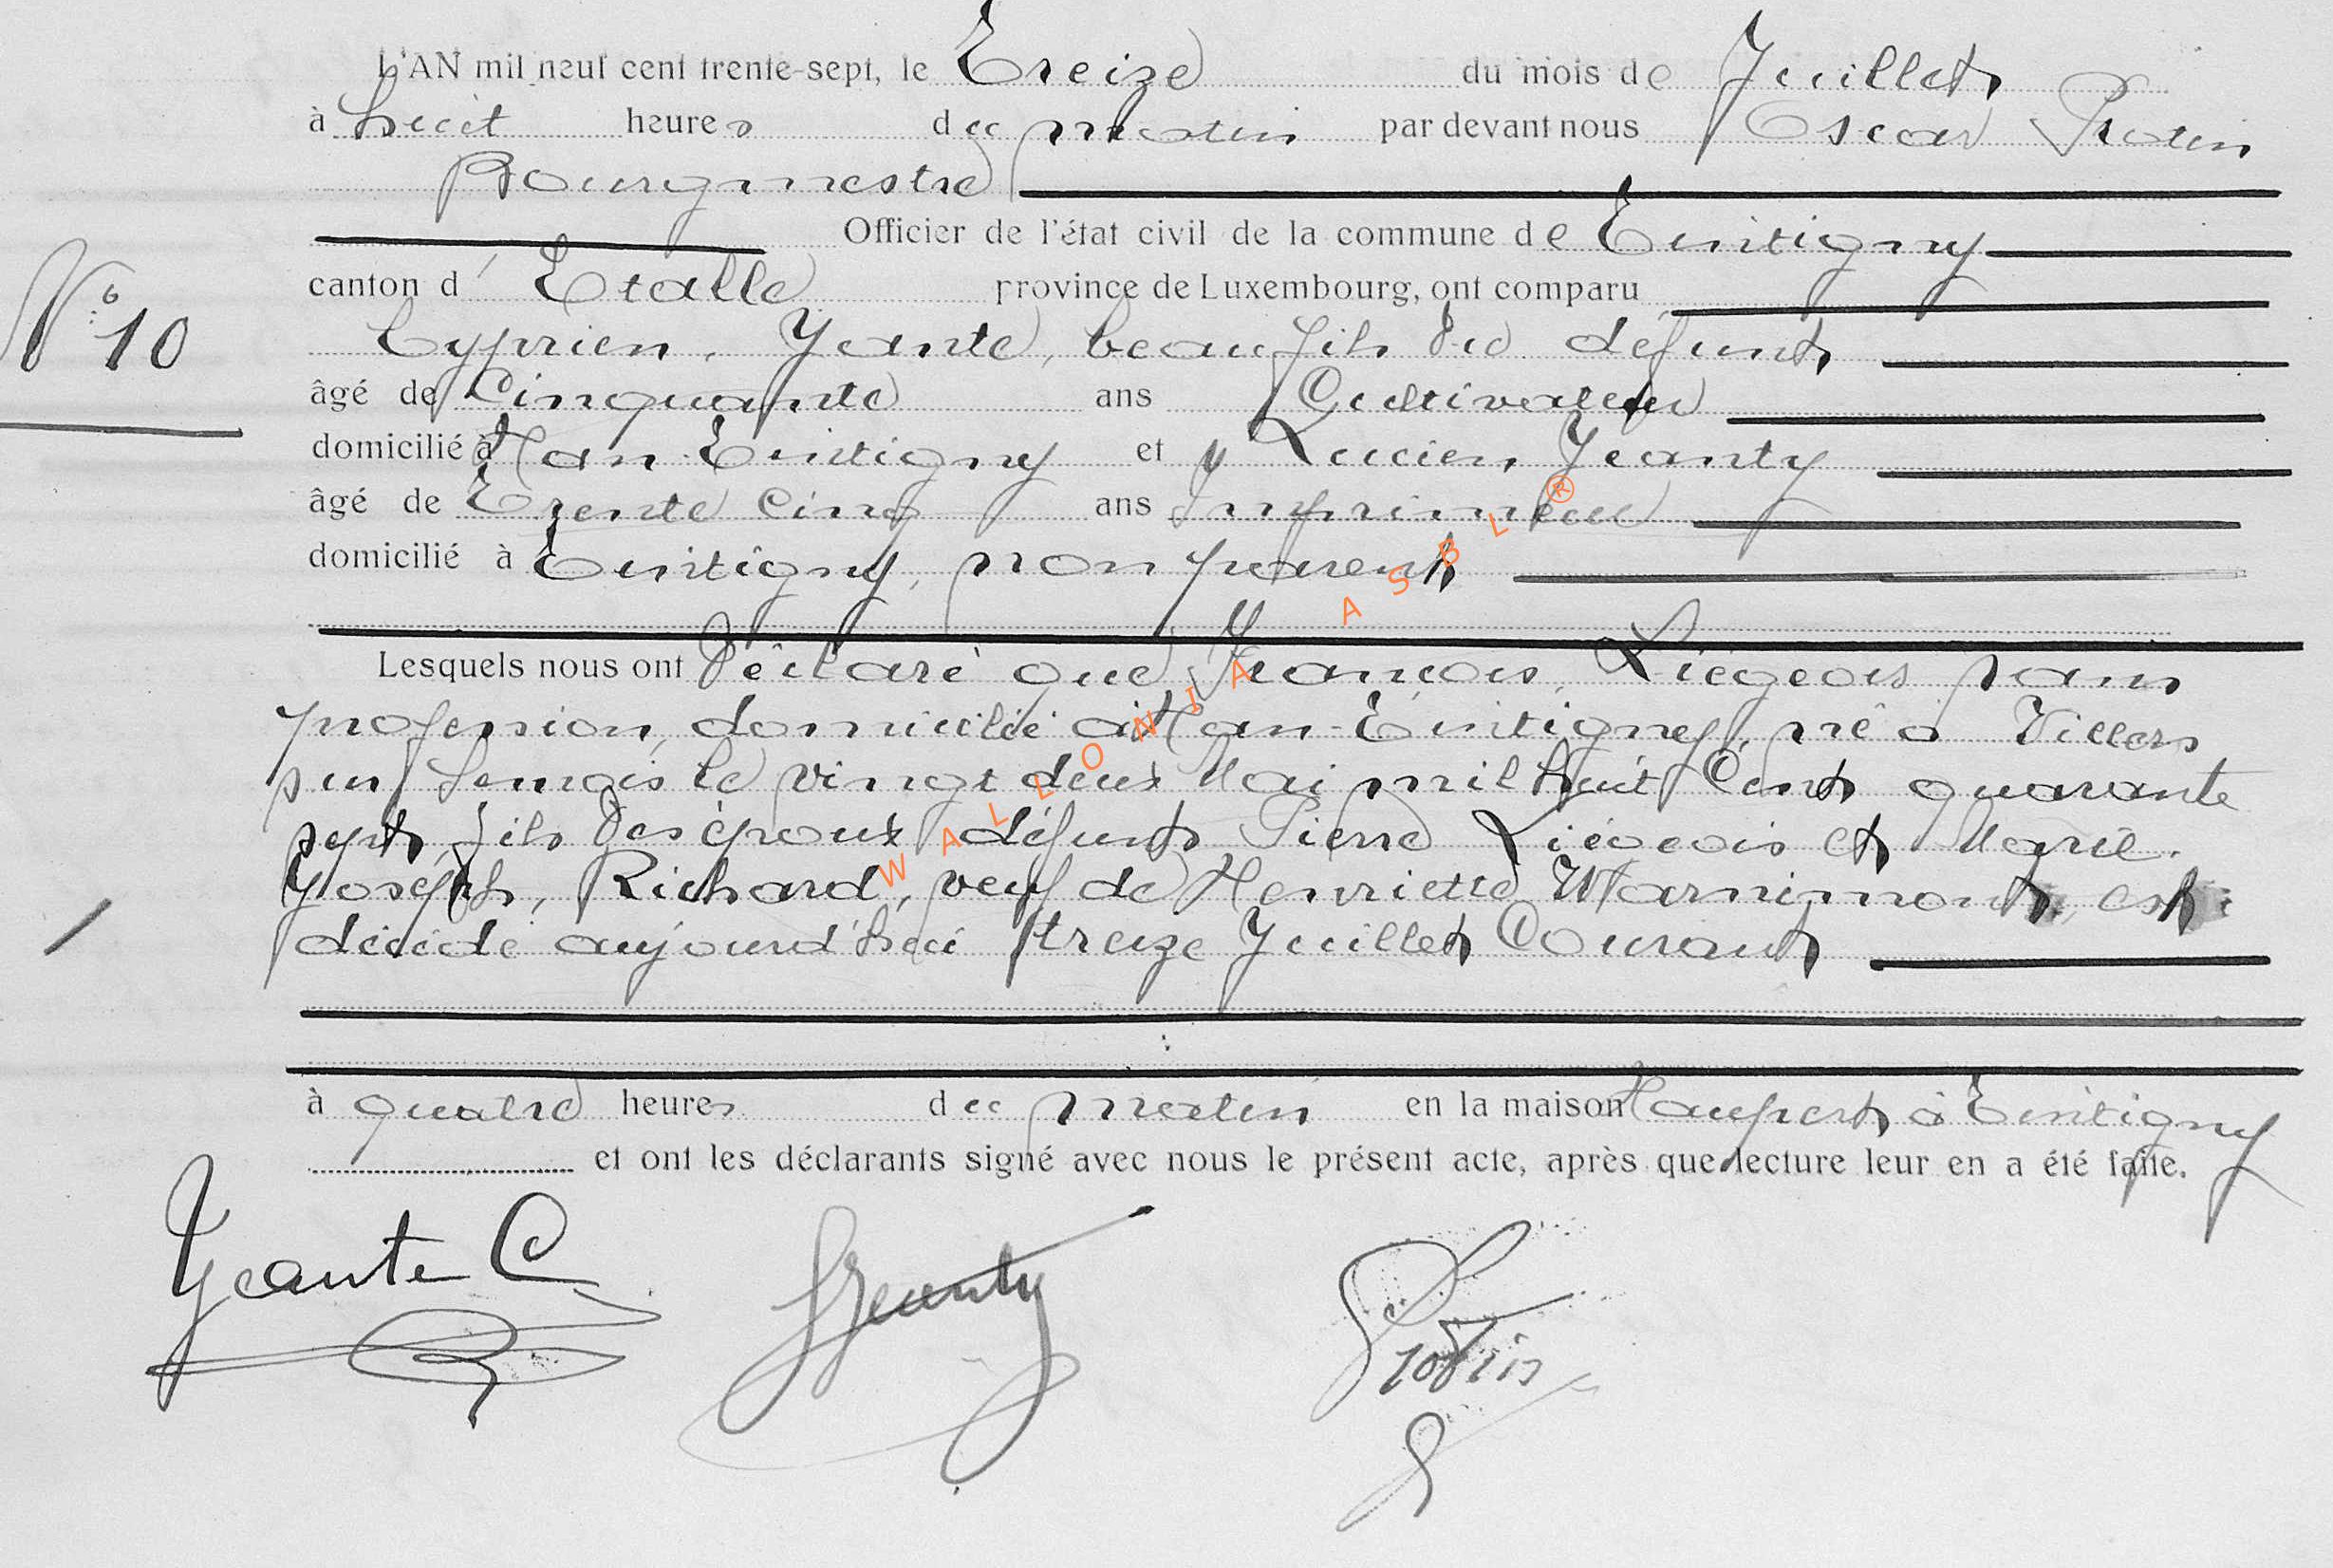 L'AN mil neuf cent trente-sept, le Treize du mois de Juillet
à huit heures du matin par devant nous Oscar Protin
Bourgmestre
Officier de l'état civil de la commune de Tintigny
N° 10
canton d' Etalle province de Luxembourg, ont comparu
Cyprien, Jeante, beau fils du défunt
âgé de Cinquante ans Cultivateur
domicilié à Han-Tintigny et Lucien Jeanty
âgé de Trente Cinq ans Imprimeur
domicilié à Tintigny, non parent
Lesquels nous ont déclaré que François, Liégeois sans
profession, domicilié à Han-Tintigny, né à Villers
sur Semois le vingt deux Mai mil huit Cent quarante
sept, fils des époux défunts Pierre Liégeois et Marie
Joseph, Richard, veuf de Henriette Warnimont, est
décédé aujourd'hui treize Juillet Courant
à quatre heures du matin en la maison Haupert à Tintigny
et ont les déclarants signé avec nous le présent acte, après que lecture leur en a été faite.
Jeante C LJeanty Protin
WALLONIA ASBL ®